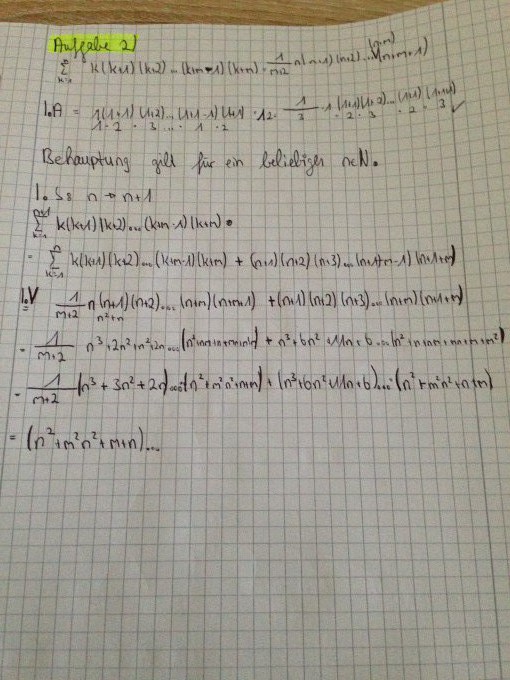 Aufgabe 2)
∑ k=1 n k(k+1)(k+2)...(k+m-1)(k+m) = 1/m+2 n(n+1)(n+2)...(n+m)(n+m+1)
I.A = 1(1+1)(1+2)...(1+1-1)(1+1)
1·2·3...·1·2
Behauptung gilt für ein beliebiges n∈N.
I.Ss n→n+1
∑ k=1 n+1 k(k+1)(k+2)...(k+m-1)(k+m) =
= ∑ k=1 n k(k+1)(k+2)...(k+m-1)(k+m) + (n+1)(n+2)(n+3)...(n+1+m-1)(n+1+m)
I.V 1/m+2 n(n+1)(n+2)...(n+m)(n+m+1) + (n+1)(n+2)(n+3)...(n+m)(n+1+m)
n²+n
= 1/m+2 n³+2n²+n²+2n... + n³+6n²+11n+6...
= 1/m+2 (n³+3n²+2n)...·(n²+m²n²+n+m) + (n³+6n²+11n+6)...·(n²+m²n²+n+m)
= (n²+m²n²+m+n)...